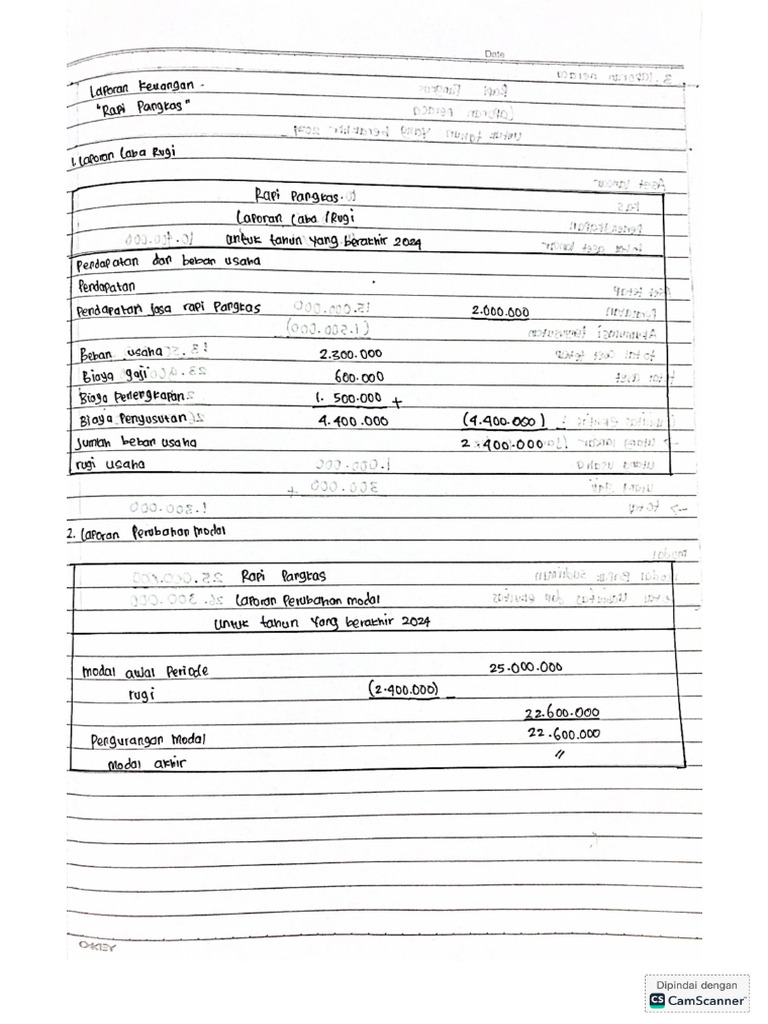 Date
Laporan Keuangan -
"Rapi Pangkas"
1. Laporan Laba Rugi
Rapi Pangkas
Laporan Laba /Rugi
untuk tahun yang berakhir 2024
Pendapatan dan beban usaha
Pendapatan
Pendapatan jasa rapi Pangkas 2.000.000
Beban usaha 2.300.000
Biaya gaji 600.000
Biaya Perlengkapan 1.500.000 +
Biaya Penyusutan 4.400.000 (4.400.000)
Jumlah beban usaha 2.400.000
rugi usaha
2. Laporan Perubahan modal
Rapi Pangkas
Laporan Perubahan modal
Untuk tahun yang berakhir 2024
modal awal Periode 25.000.000
rugi (2.400.000)
22.600.000
Pengurangan Modal 22.600.000
modal akhir //
OKEY
Dipindai dengan
CS CamScanner